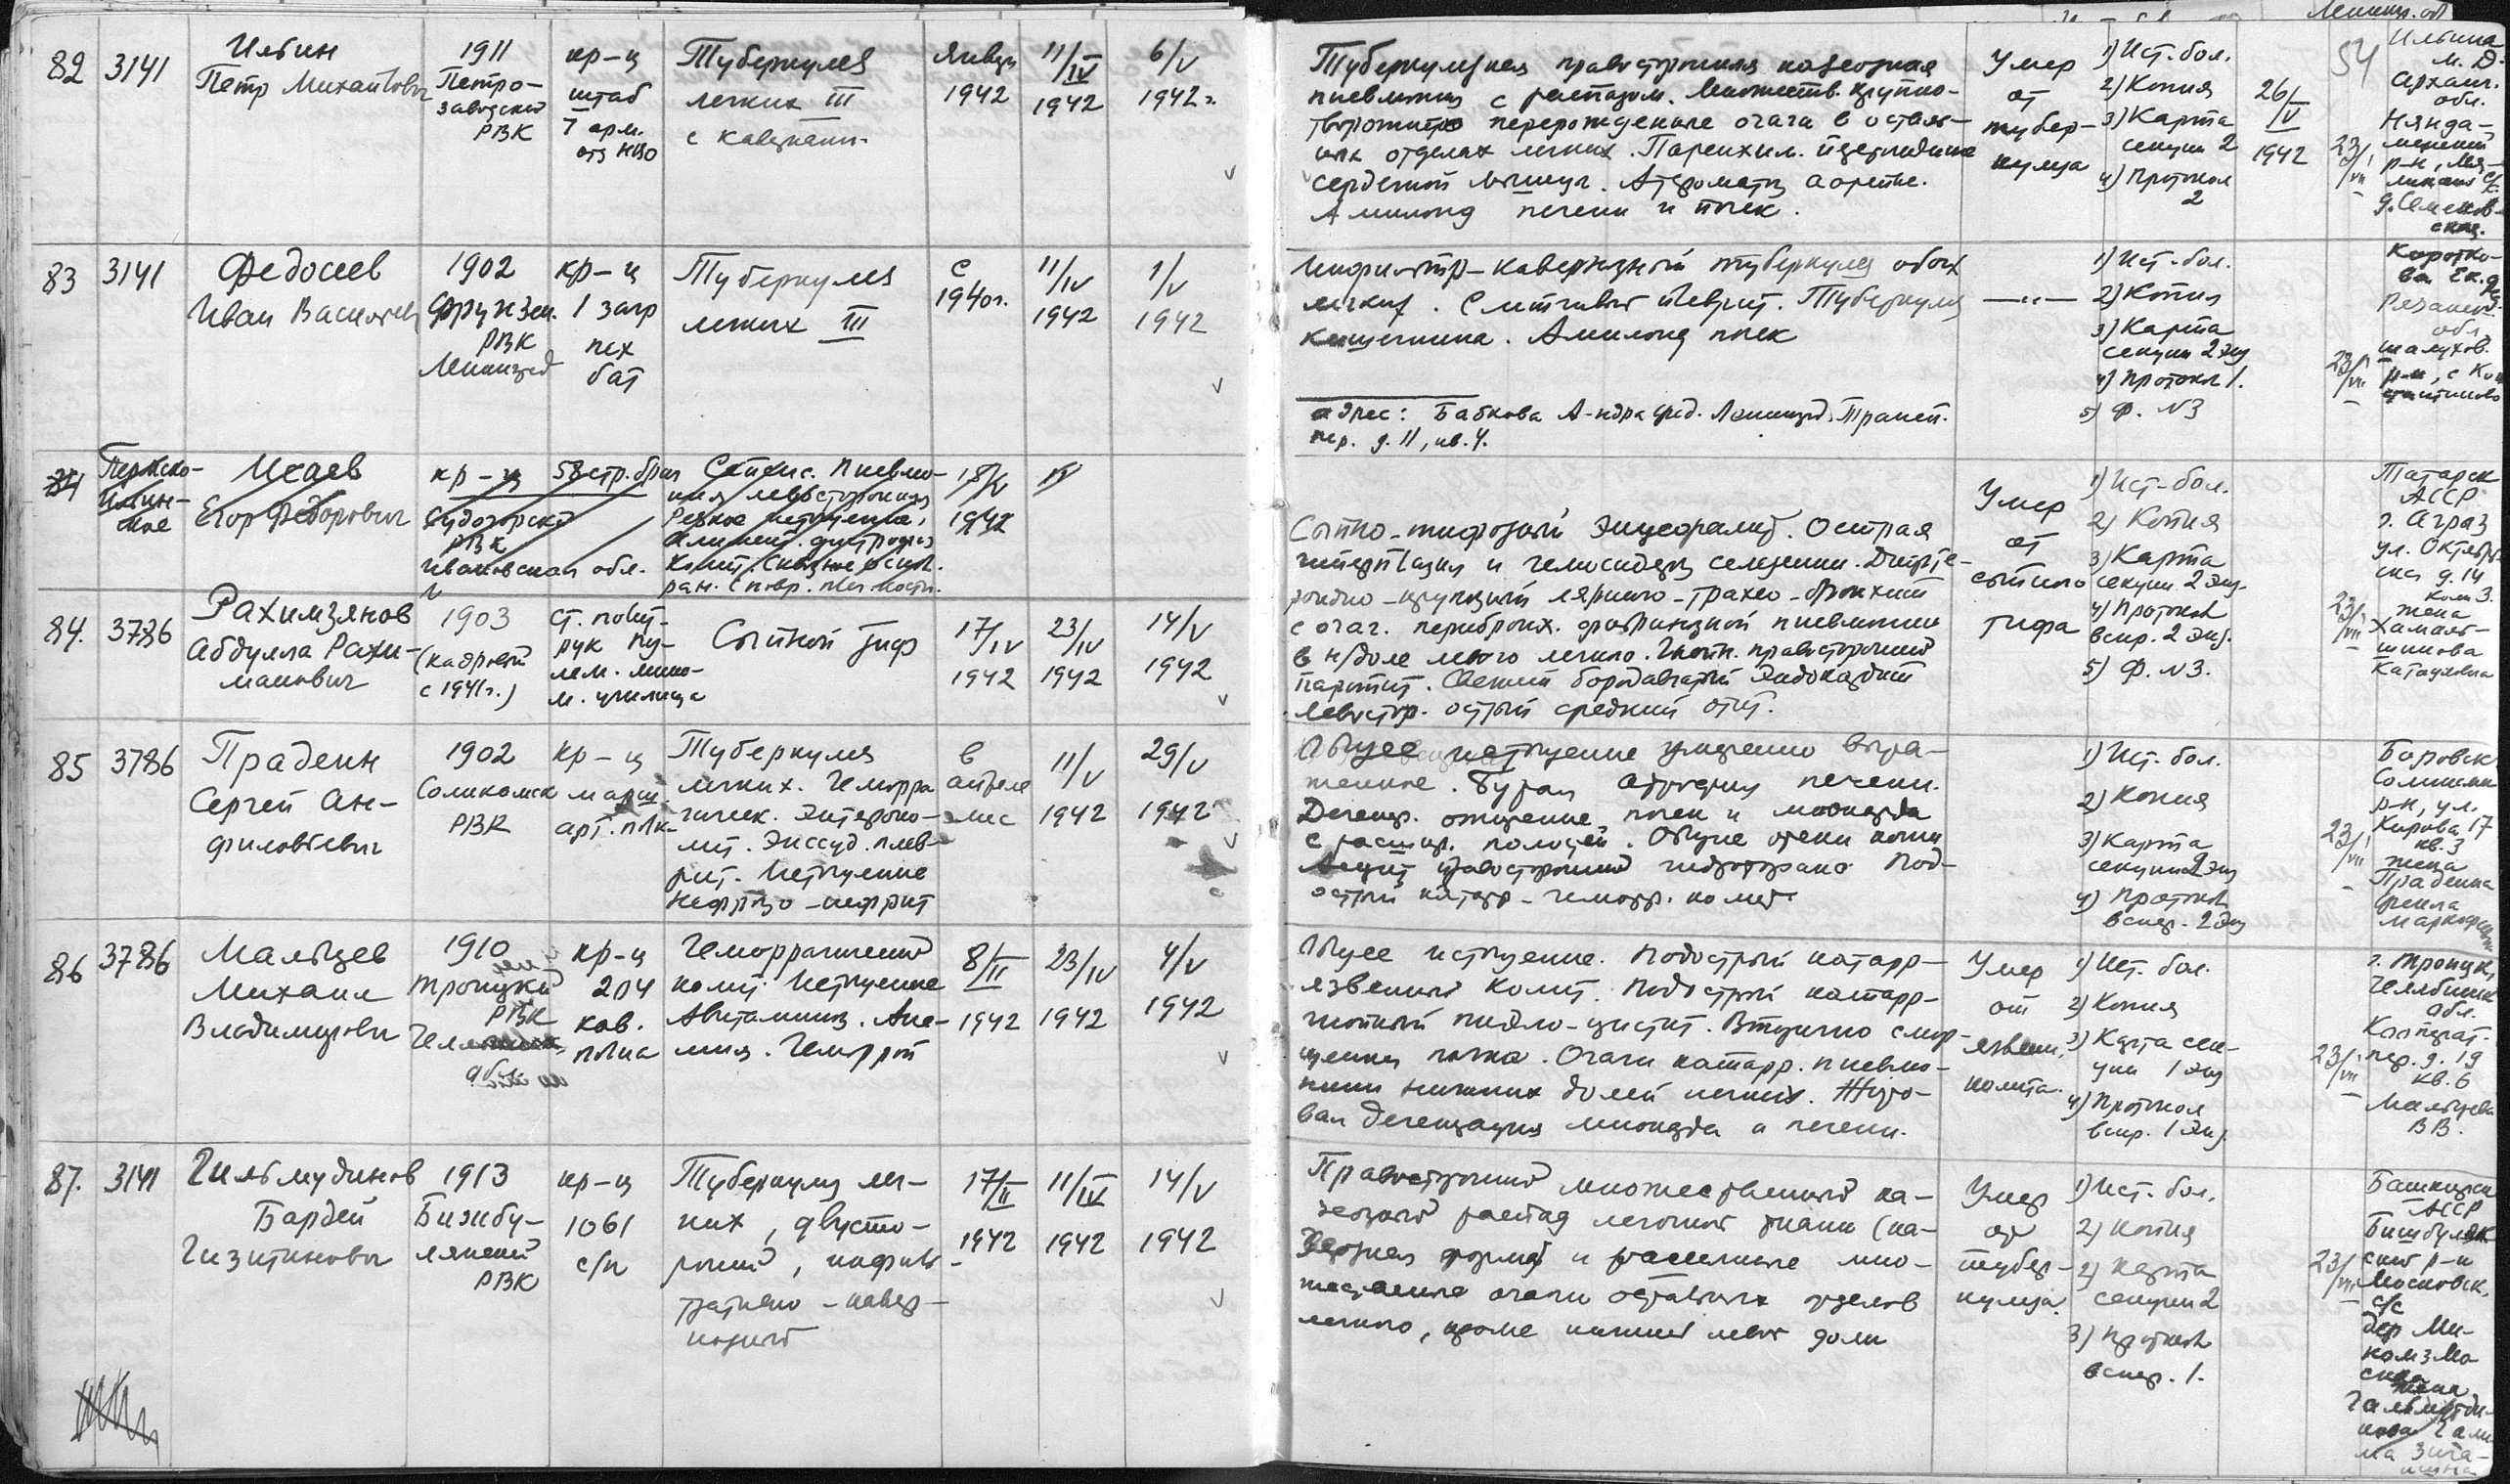 82
3141
Ильин
Петр Михайлович
1911
Петро-
заводский
РВК
кр-ц
штаб
7 арм.
Туберкулез
легких III
с кавернами.
январь
1942
11/IV
1942
6/V
1942 г.
Туберкулезная правосторонняя казеозная
пневмония с распадом. Множеств. крупно-
творожистые перерождение очаги в осталь-
ных отделах легких. Паренхим.
сердечной мышцы. Атероматоз аорты.
Амилоид печени и почек.
Умер
от
тубер-
кулеза
1) Ист. бол.
2) Копия
3) Карта
секции 2
4) Протокол
2
26/V
1942
54
23/VII
Ильина
М. Д.
Арханг.
обл.
Няндо-
мский
р-н,
д. Семенов-
ская.
83
3141
Федосеев
Иван Васильевич
1902
Фрунзен.
РВК
Ленинград
кр-ц
1 загр
пех
бат
Туберкулез
легких III
с
1940 г.
11/IV
1942
1/V
1942
Инфильтр-кавернозный туберкулез обоих
легких. Слипчивый плеврит. Туберкулез
кишечника. Амилоид почек
адрес: Бабкова А-ндра Фед. Ленинград.
пер. д. 11, кв. 4.
—"—
1) Ист. бол.
2) Копия
3) Карта
секции 2 экз
4) Протокол 1.
5) Ф. N3
23/VII
Коротко-
ва Ек.
Рязанск.
обл.
шелухов.
р-н, с Кон
стантиново
84
Исаев
Егор Федорович
кр-ц
Судогорский
РВК
Ивановская обл.
58 стр. бриг
Сепсис. Пневмо-
ния левосторонняя
Резкое истощение,
Алимент. дистрофия
Колит. Сквозное оскол.
ран. с повр. плеч. кости.
18/V
1942
IV
84.
3786
Рахимзянов
Абдулла Рахи-
манович
1903
(кадровый
с 1941 г.)
ст. полит-
рук пу-
лем. мино-
м. училища
Сыпной тиф
17/IV
1942
23/IV
1942
14/V
1942
Сыпно-тифозный энцефалит. Острая
гиперплазия и гемосидероз селезенки. Дифте-
роидно-крупозный ларинго-трахео-бронхит
с очаг. перибронх. фибринозной пневмонии
в н/доле левого легкого. Гнойн. правосторонний
паротит. Свежий бородавчатый эндокардит
Левостор. острый средний отит.
Умер
от
сыпного
тифа
1) Ист-бол.
2) Копия
3) Карта
секции 2 экз.
4) Протокол
вскр. 2 экз.
5) Ф. N3.
23/VII
Татарск
АССР
г. Аграз
ул. Октябрь-
ская д. 14
ком 3.
жена
85
3786
Прадеин
Сергей Ан-
филофьевич
1902
Соликамск
РВК
кр-ц
марш.
арт. полк
Туберкулез
легких. Геморра
гическ. Энтероко-
лит. Экссуд. плев-
рит. Истощение
Нефрозо-нефрит
в
апреле
11/V
1942
29/V
1942
Общее истощение умеренно выра-
женное. Бурая атрофия печени.
Дегенер. ожирение почек и миокарда
с расшир. полостей. Общие отеки кожи
Асцит правосторонний гидроторакс Под-
острый катарр-геморр. колит
1) Ист. бол.
2) Копия
3) Карта
секции 2 экз
4) Протокол
вскр. 2 экз
23/VII
Боровск
Соликам
р-н, ул.
Кирова 17
кв. 3
жена
Прадеина
86
3786
Мальцев
Михаил
Владимирович
1910
Троицкий
РВК
кр-ц
204
кав.
полка
Геморрагический
колит. Истощение
Авитаминоз. Ане-
мия. Геморрой
8/II
1942
23/IV
1942
4/V
1942
Общее истощение. Подострый катарр-
язвенный колит. Подострый катарр-
гнойный пиэло-цистит. Вторично смор-
щенная почка. Очаги катарр. пневмо-
нии нижних долей легких. Жиро-
вая дегенерация миокарда и печени.
Умер
от
язвенн.
колита.
1) Ист. бол.
2) Копия
3) Карта сек-
ции 1 экз
4) Протокол
вскр. 1 экз.
23/VII
г. Троицк,
Челябинск
обл.
Кооперат.
пер. д. 19
кв. 6
Мальцева
В В.
87.
3141
Гильмудинов
Бардей
Гизитинович
1913
Бижбу-
лякский
РВК
кр-ц
1061
с/п
Туберкулез лег-
ких, двусто-
ронний, инфиль-
тративно-кавер-
нозный
17/II
1942
11/IV
1942
14/V
1942
Правосторонний множественный ка-
зеозный распад легочной ткани (ка-
вернозная форма) и рассеянные мно-
жественные очаги остальных отделов
легкого, кроме нижней левой доли
Умер
от
тубер-
кулеза.
1) Ист. бол.
2) Копия
2) карта
секции 2
3) протокол
вскр. 1.
23/VII
Башкирск
АССР
Бишбуляк
ский р-н
Московск.
с/с
дер Ми-
жена